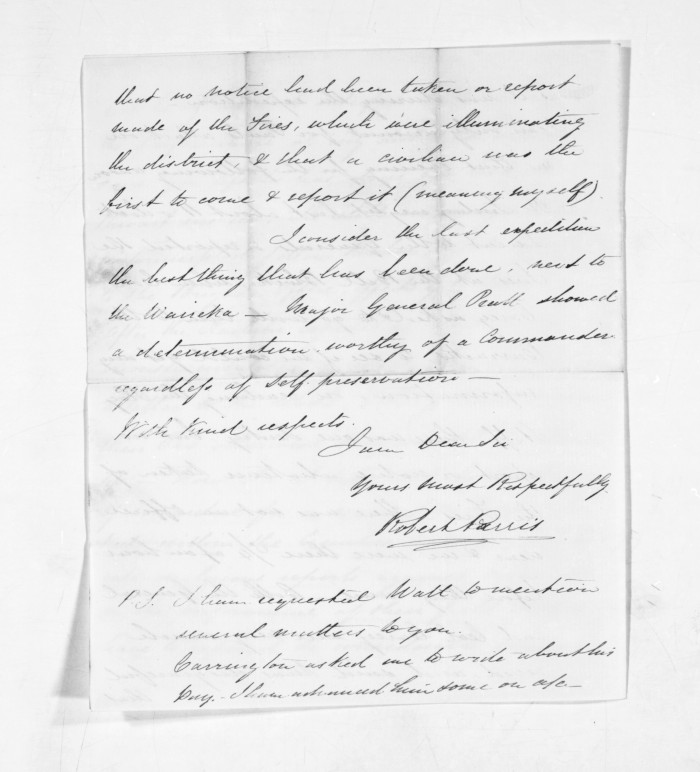 that no notice had been taken or report
made of the Fires, which were illuminating
the district, & that a civilian was the
first to come & report it (meaning myself)
I consider the last expedition
the best thing that has been done, next to
the Waireka — Major General Pratt showed
a determination worthy of a Commander
regardless of self preservation —
With kind respects.
I am Dear Sir
Yours most Respectfully
Robert Parris
P.S. I have requested Wall to mention
several matters to you.
Carrington asked me to write about his
Pay. I have advanced him some on a/c —